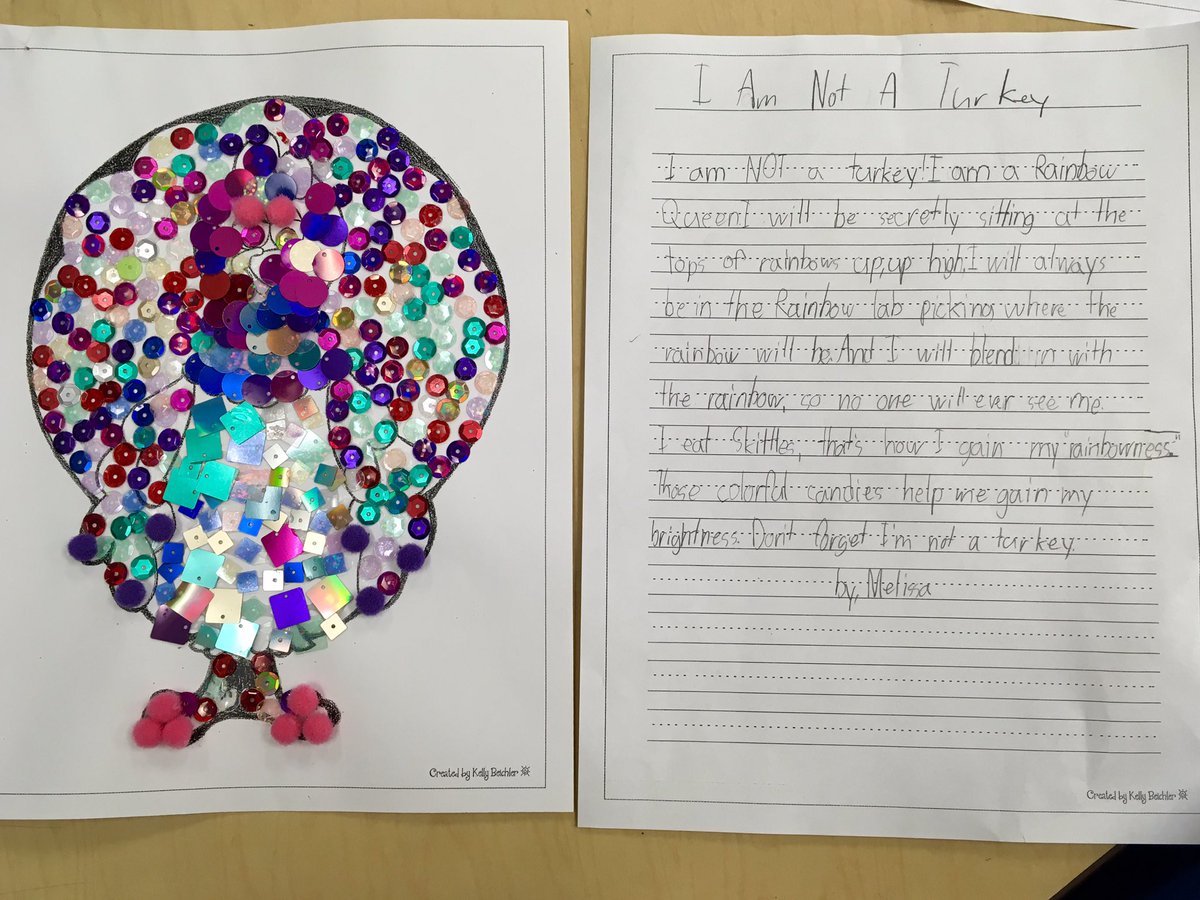 I Am Not A Turkey
I am NOT a turkey! I am a Rainbow
Queen.I will be secretly sitting at the
tops of rainbows up,up high.I will always
be in the Rainbow lab picking where the
rainbow will be.And I will blend in with
the rainbow, so no one will ever see me.
I eat Skittles, that's how I gain my "rainbowness."
Those colorful candies help me gain my
brightness. Don't forget I'm not a turkey.
by, Melissa
Created by Kelly Beichler
Created by Kelly Beichler